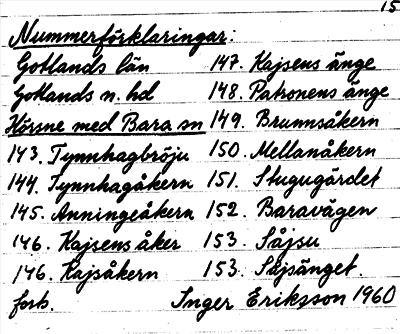 15
Nummerförklaringar:
Gotlands län
Gotlands n. hd
Hörsne med Bara sn
143. Tynnhagbröju
144. Tynnhagåkern
145. Anningeåkern
146. Kajsens åker
146. Kajsåkern
forts.
147. Kajsens änge
148. Patronens änge
149. Brunnsåkern
150. Mellanåkern
151. Stugugärdet
152. Baravägen
153. Såjsu
153. Såjsänget.
Inger Eriksson 1960